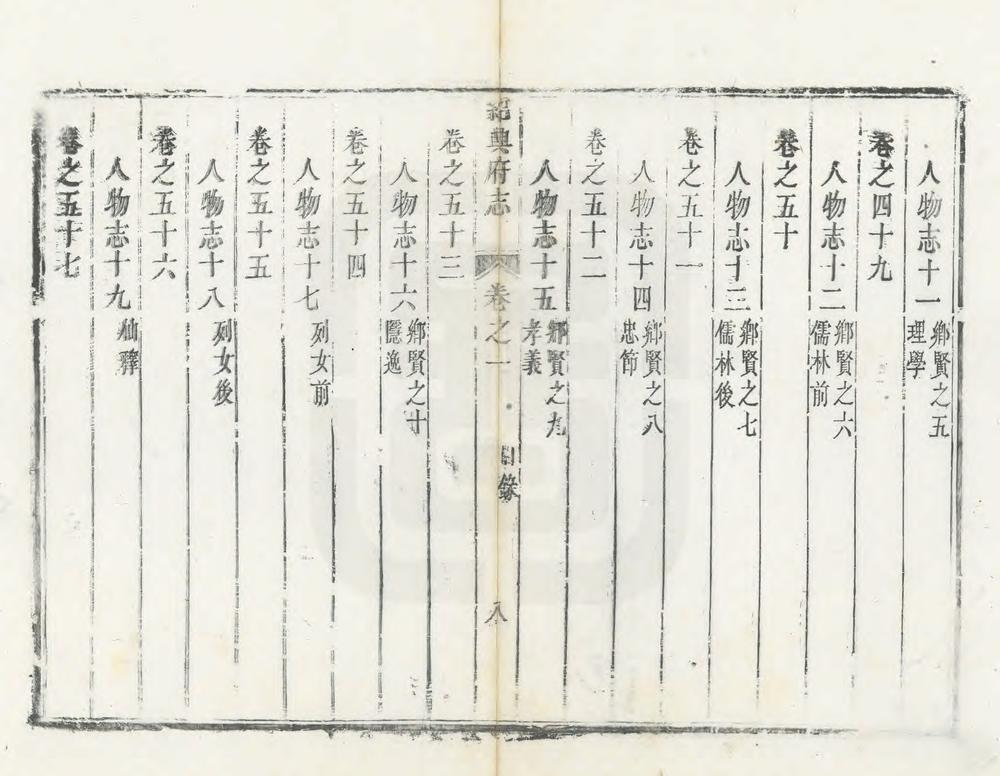 人物志十一 鄉賢之五 理學
卷之四十九
人物志十二 鄉賢之六 儒林前
卷之五十
人物志十三 鄉賢之七 儒林後
卷之五十一
人物志十四 鄉賢之八 忠節
卷之五十二
人物志十五 鄉賢之九 孝義
紹興府志 卷之一 目錄 八
卷之五十三
人物志十六 鄉賢之十 隱逸
卷之五十四
人物志十七 列女前
卷之五十五
人物志十八 列女後
卷之五十六
人物志十九 仙釋
卷之五十七